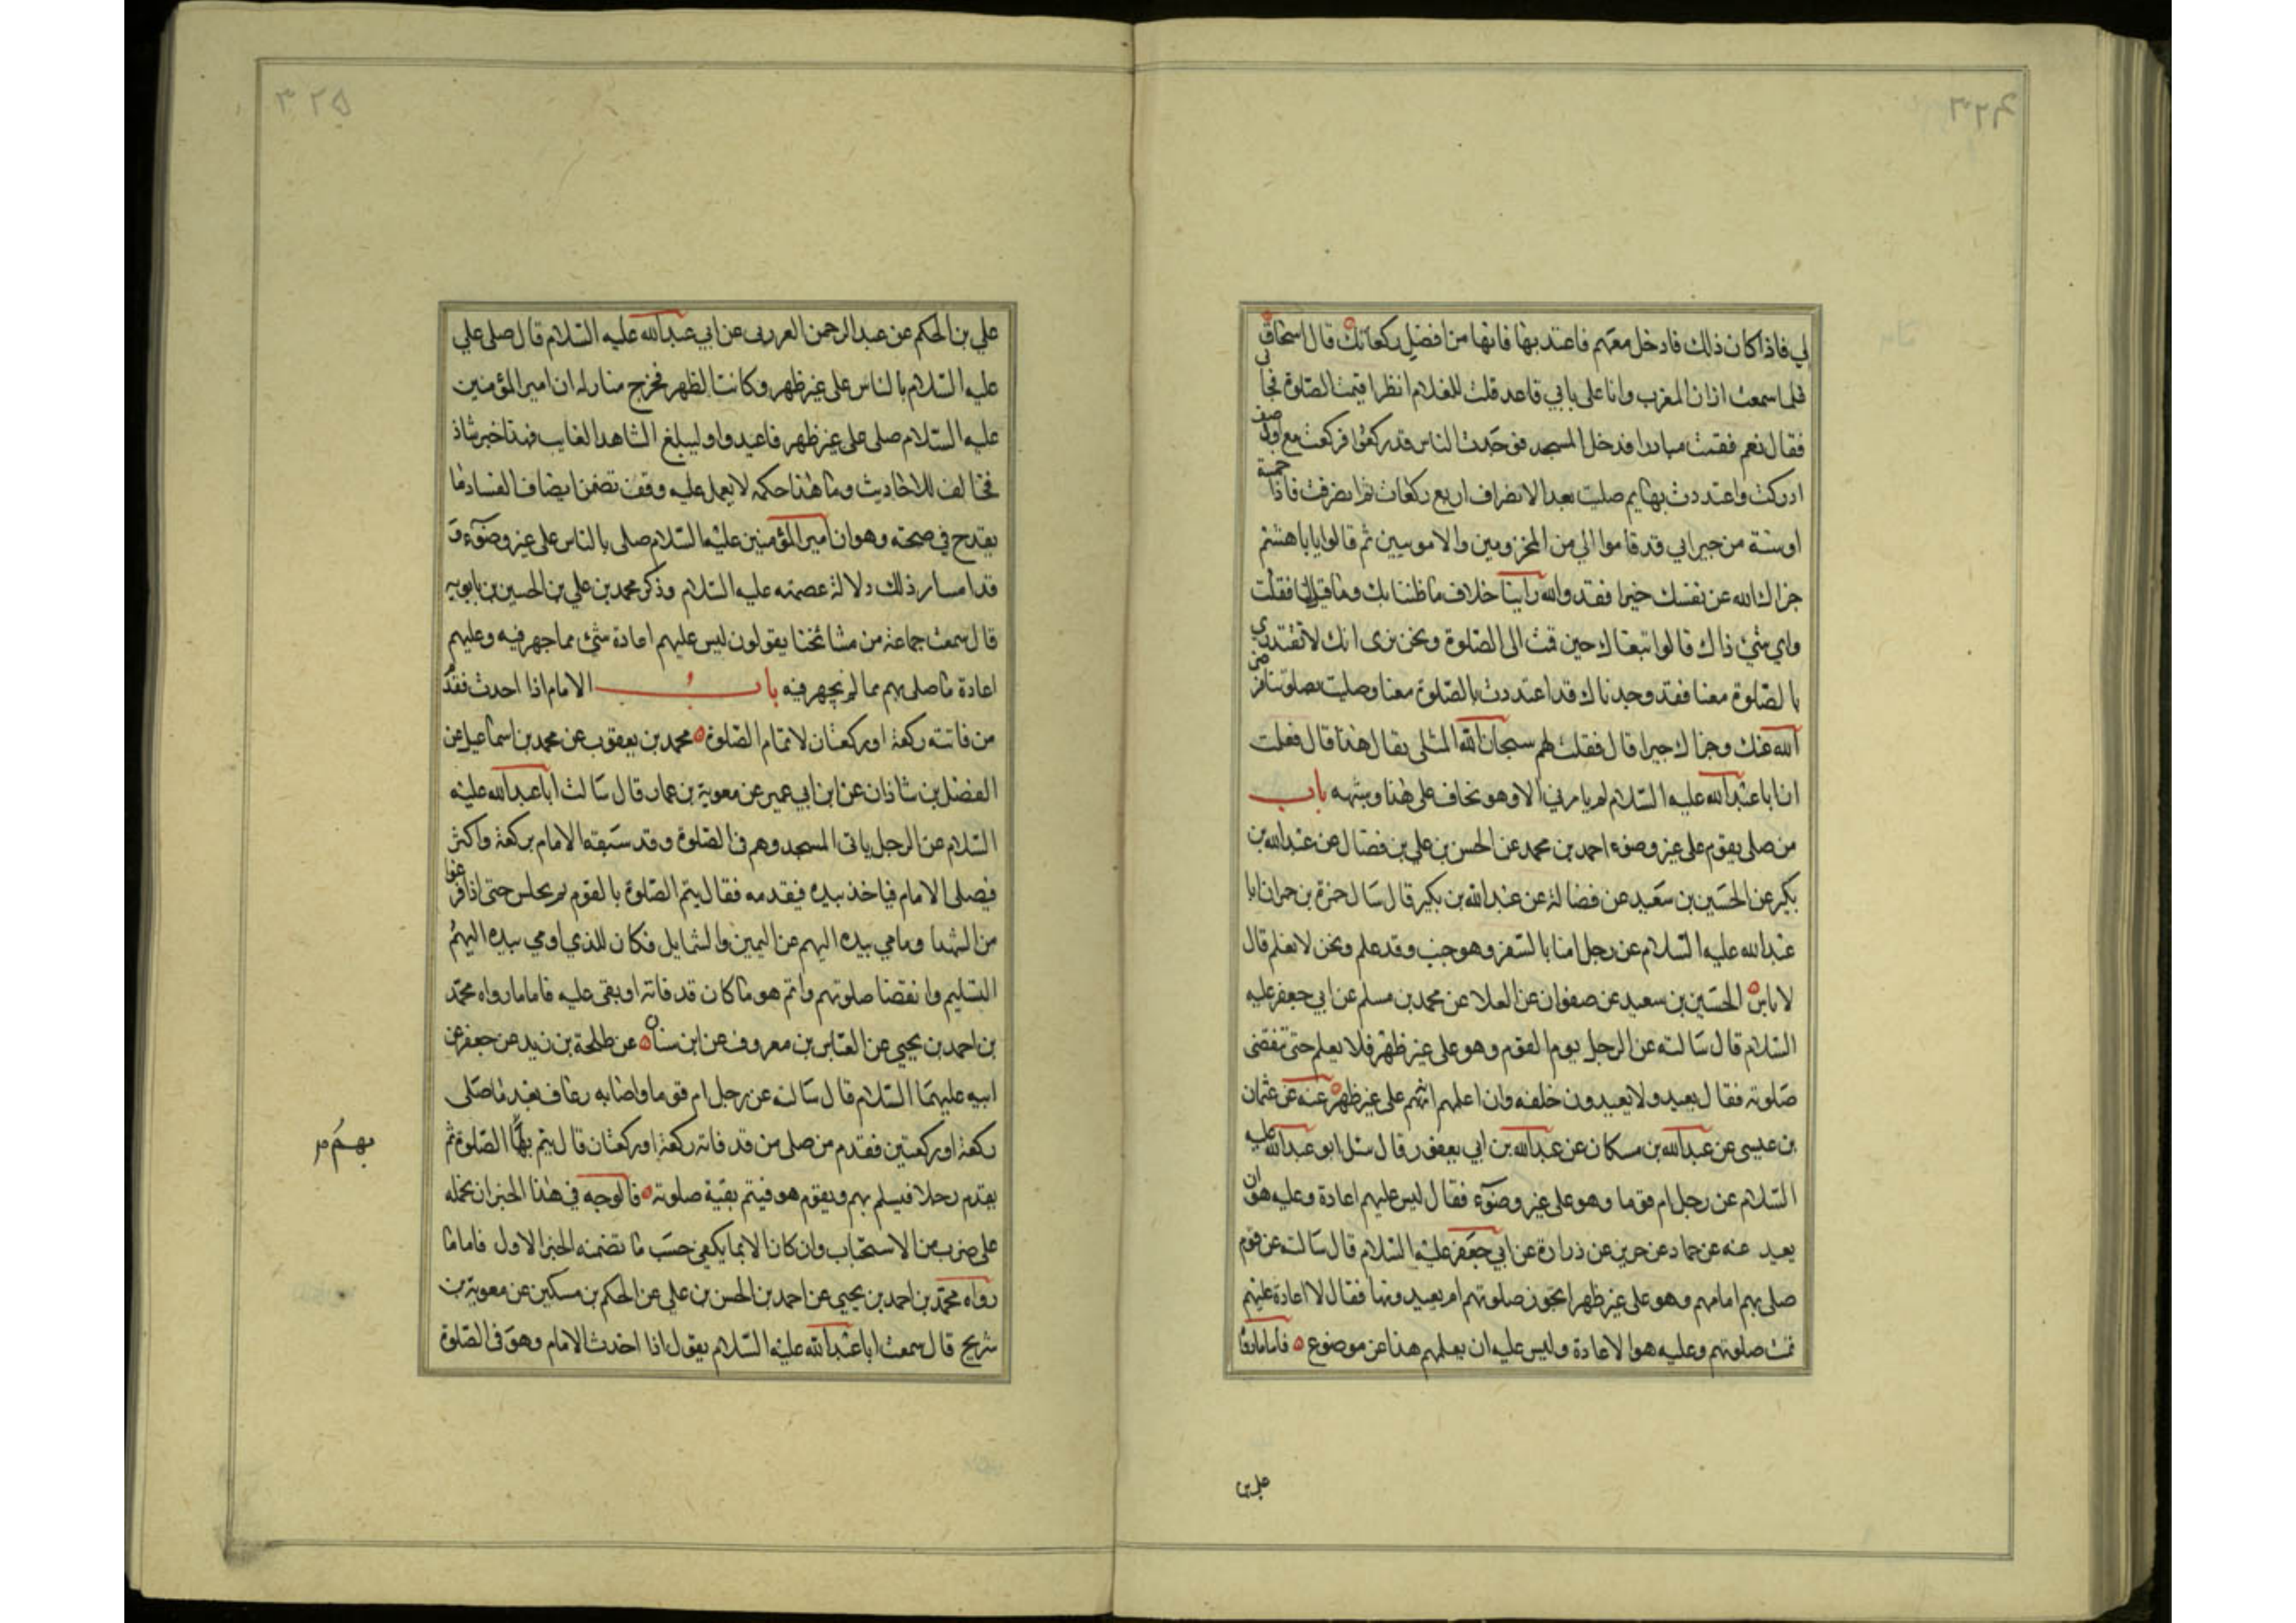 لي فاذا كان ذالك فادخل معهم فاعتد بها فانها من افضل ركعاتك قال اسحاق
فلما سمعت اذان المغرب وانا على بابي قاعد قلت للغلام انظر اقيمت الصلوة فجاني
فقال نعم فقمت مبادرا فدخل المسجد فوجدت الناس قد ركعوا فركعت مع اول صف
ادركت واعتددت بها ثم صليت بعد الانصراف اربع ركعات ثم انصرفت فاذا خمسة
او ستة من جيراني قد قاموا الي من المخزوميين والامويين ثم قالوا يا با هشتم
جزاك الله عن نفسك خيرا فقد والله راينا خلاف ما ظننا بك وما قيل لنا فقلت
واي شئ ذاك قالوا تبعناك حين قمت الى الصلوة ونحن نرى انك لا تقتدي
بالصلوة معنا فقد وجدناك قد اعتددت بالصلوة معنا وصليت بصلوتنا فرضى
الله عنك وجزاك خيرا قال فقلت لهم سبحان الله المثلى يقال هذا قال فعلمت
ان ابا عبد الله عليه السلام لم يامرني الا وهو يخاف على هذا وشبهه باب
من صلى بقوم على غير وضوء احمد بن محمد عن الحسن بن علي بن فضال عن عبد الله بن
بكير عن الحسين بن سعيد عن فضالة عن عبد الله بن بكير قال سال حمزة بن حمران ابا
عبد الله عليه السلام عن رجل امنا بالسفر وهو جنب وقد علم ونحن لا نعلم قال
لا باس الحسين بن سعيد عن صفوان عن العلا عن محمد بن مسلم عن ابي جعفر عليه
السلام قال سالته عن الرجل يوم القوم وهو على غير ظهر فلا يعلم حتى تنقضى
صلوته فقال يعيد ولا يعيدون خلفه وان اعلمهم انهم على غير ظهر عنه عن عثمان
بن عيسى عن عبد الله بن مسكان عن عبد الله بن ابي يعفور قال سئل ابو عبد الله عليه
السلام عن رجل ام قوما وهو على غير وضوء فقال ليس عليهم اعادة وعليه هو ان
يعيد عنه عن حماد عن حريز عن زرارة عن ابي جعفر عليه السلام قال سالته عن قوم
صلى بهم امامهم وهو على غير ظهر اتجوز صلوتهم ام يعيدونها فقال لا اعادة عليهم
تمت صلوتهم وعليه هو الاعادة وليس عليه ان يعلمهم هذا عن موضوع فاما ما رواه
علي بن
٣٢٥
علي بن الحكم عن عبد الرحمن العرزمى عن ابي عبد الله عليه السلام قال صلى علي
عليه السلام بالناس على غير ظهر وكانت الظهر فخرج مناديه ان امير المؤمنين
عليه السلام صلى على غير ظهر فاعيدوا وليبلغ الشاهد الغايب فهذا خبر شاذ
مخالف للاحاديث وما هذا حكمه لا يعمل عليه وقف تضمن ايضا ف الفساد ما
يقدح في صحته وهو ان امير المؤمنين عليه السلام صلى بالناس على غير وضوء و
قد امسا من ذلك دلالة عصمته عليه السلام وذكر محمد بن علي بن الحسين بن بابويه
قال سمعت جماعة من مشائخنا يقولون ليس عليهم اعادة شئ مما جهر فيه وعليهم
اعادة ما صلى بهم مما لم يجهر فيه باب الامام اذا احدث فقدم
من فاتته ركعة او ركعتان لاتمام الصلوة محمد بن يعقوب عن محمد بن اسماعيل عن
الفضل بن شاذان عن ابن ابي عمير عن معوية بن عمار قال سالت ابا عبد الله عليه
السلام عن الرجل ياتى المسجد وهم فى الصلوة وقد سبقه الامام بركعة واكثر
فيصلى الامام فياخذ بيده فيقدمه فقال يتم الصلوة بالقوم ثم يجلس حتى اذا فرغوا
من التشهد اومى بيده اليهم عن اليمين والشمايل فكان للذي اومى بيده اليهم
التسليم وانقضا صلوتهم واتم هو ما كان قد فاته او بقى عليه فاما ما رواه محمد
بن احمد بن يحيى عن العباس بن معروف عن ابن سنان عن طلحة بن زيد عن جعفر عن
ابيه عليهما السلام قال سالته عن رجل ام قوما واصابه رعاف بعد ما صلى
ركعة او ركعتين فقدم من صلى من قد فاته ركعة او ركعتان قال يتم بها الصلوة ثم
بهم
يقدم رجلا فيسلم بهم ويقوم هو فيتم بقية صلوته فالوجه في هذا الخبر ان نحمله
على ضرب من الاستحباب وان كان الايما يكفى حسب ما تضمنه الخبر الاول فاما ما
رواه محمد بن احمد بن يحيى عن احمد بن الحسن بن علي عن الحكم بن مسكين عن معوية بن
شريح قال سمعت ابا عبد الله عليه السلام يقول اذا احدث الامام وهو فى الصلوة